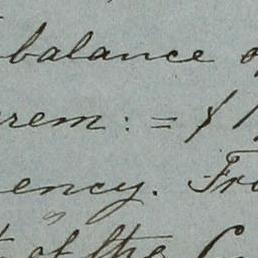 balance
rem: = $1
ency. Fr
of the C